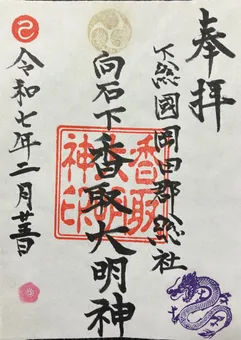 奉拝
下総國岡田郡総社
向石下香取大明神
香取
大明
神印
令和七年二月廿一日
巳